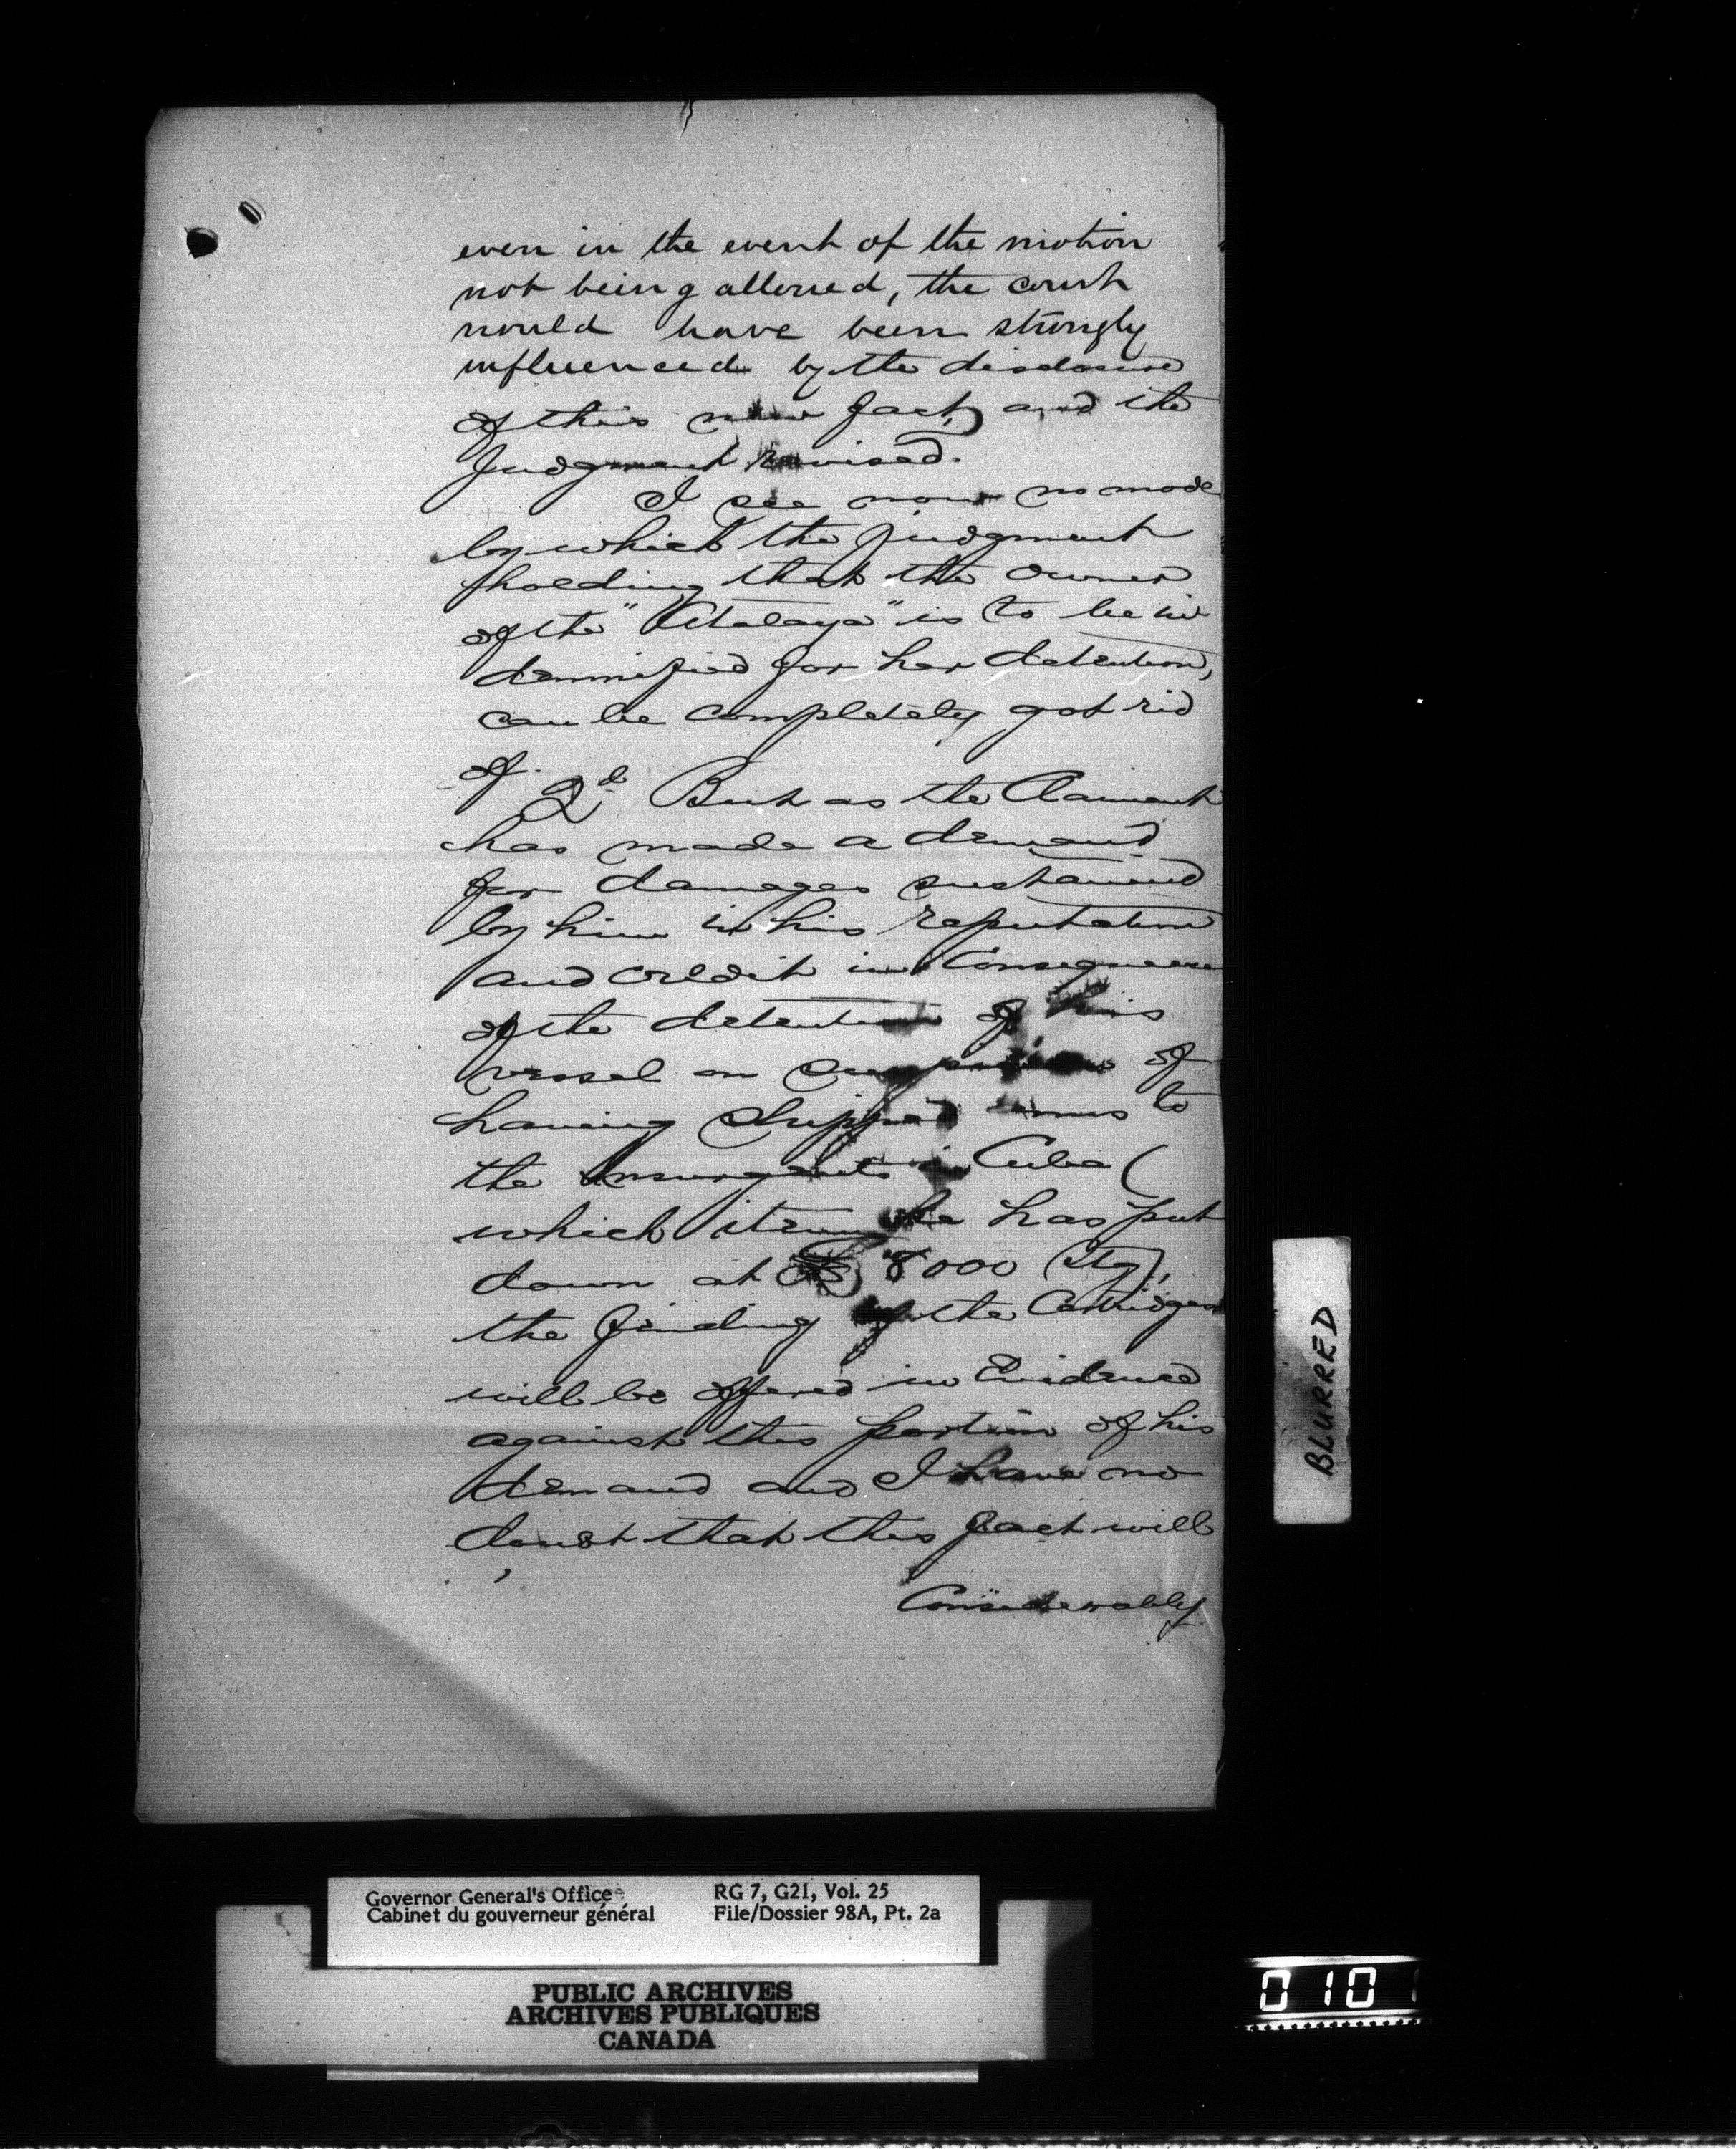 even in the event of the motion
not being allowed, the court
would have been strongly
influenced by the disclosure
of this new fact, and the
Judgment revised.
I see now no mode
by which the judgment
holding that the owner
of the "Atalaya" is to be in
demnified for her detention,
can be completely got rid
of.
2d But as the Claimant
has made a demand
for damages sustained
by him in his reputation
and credit in Consequence
of the detention of his
vessel on suspicion of
having shipped arms to
the insurgents in Cuba (
which item he has put
down at £8000 Stg),
the finding of the Cartridges
will be offered in Evidence
against this portion of his
demand and I have no
doubt that this fact will
Considerably
BLURRED
Governor General's Office
Cabinet du gouverneur général
RG 7, G21, Vol. 25
File/Dossier 98A, Pt. 2a
PUBLIC ARCHIVES
ARCHIVES PUBLIQUES
CANADA
0101